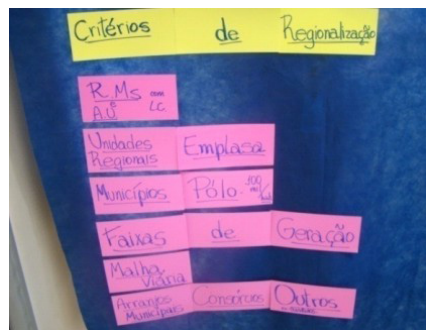 Critérios de Regionalização
R.Ms com
A.U LC.
Unidades
Regionais Emplasa
Municípios Pólo 100
Faixas de Geração
Malha
Viária
Arranjos
Municipais Consórcios Outros